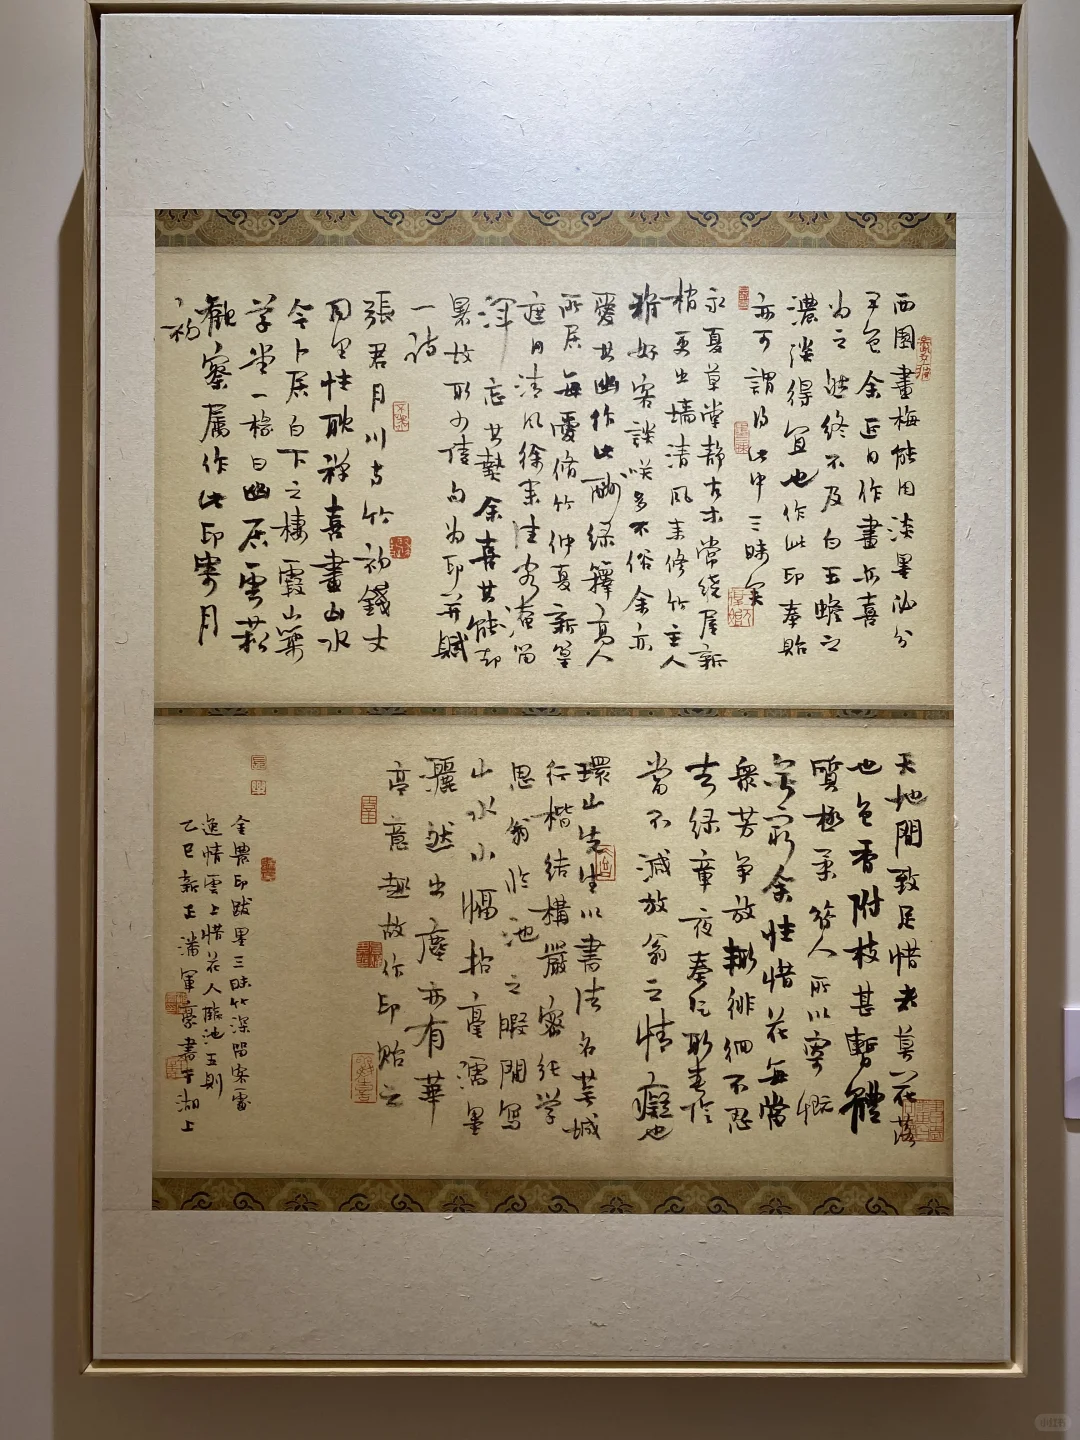 西園畫梅能用淡墨汕分
甲色余近日作畫亦喜
為之然終不及白玉蟾之
濃淡得宜也作此印奉貽
亦可謂得此中三昧矣
永夏草堂靜古木常繞屋新
梢更出墻清風來修竹主人
雅好客談咲多不俗余亦
愛其幽作此酬綠籜高人
所居每愛脩竹仲夏新篁
遮日清風徐來法客淹留
渾忘其熱余喜其能却
暑故取少陵句為印并賦
一詩
張君月川方竹初錢丈
同里性耽禪喜畫山水
今卜居白下之棲霞山築
学堂一楹曰幽居雲菘
觀察属作此印寄月
初
天地間致足惜者莫花落
也色香附枝甚暫體
質極柔答人所以寄慨
余性惜花每當
衆芳爭放輒徘徊不忍
去綠章夜奏乞取春陰
當不減放翁之情癡也
環山先生以書法名蕪城
行楷結構嚴密純学
思翁臨池之暇間寫
山水小幅拈毫濡墨
灑然出塵亦有華
亭意趣故作印貽之
金農印跋墨三昧竹深留客處
逸情雲上惜花人臨池五則
乙巳新正潘軍豪書于湖上
小红书